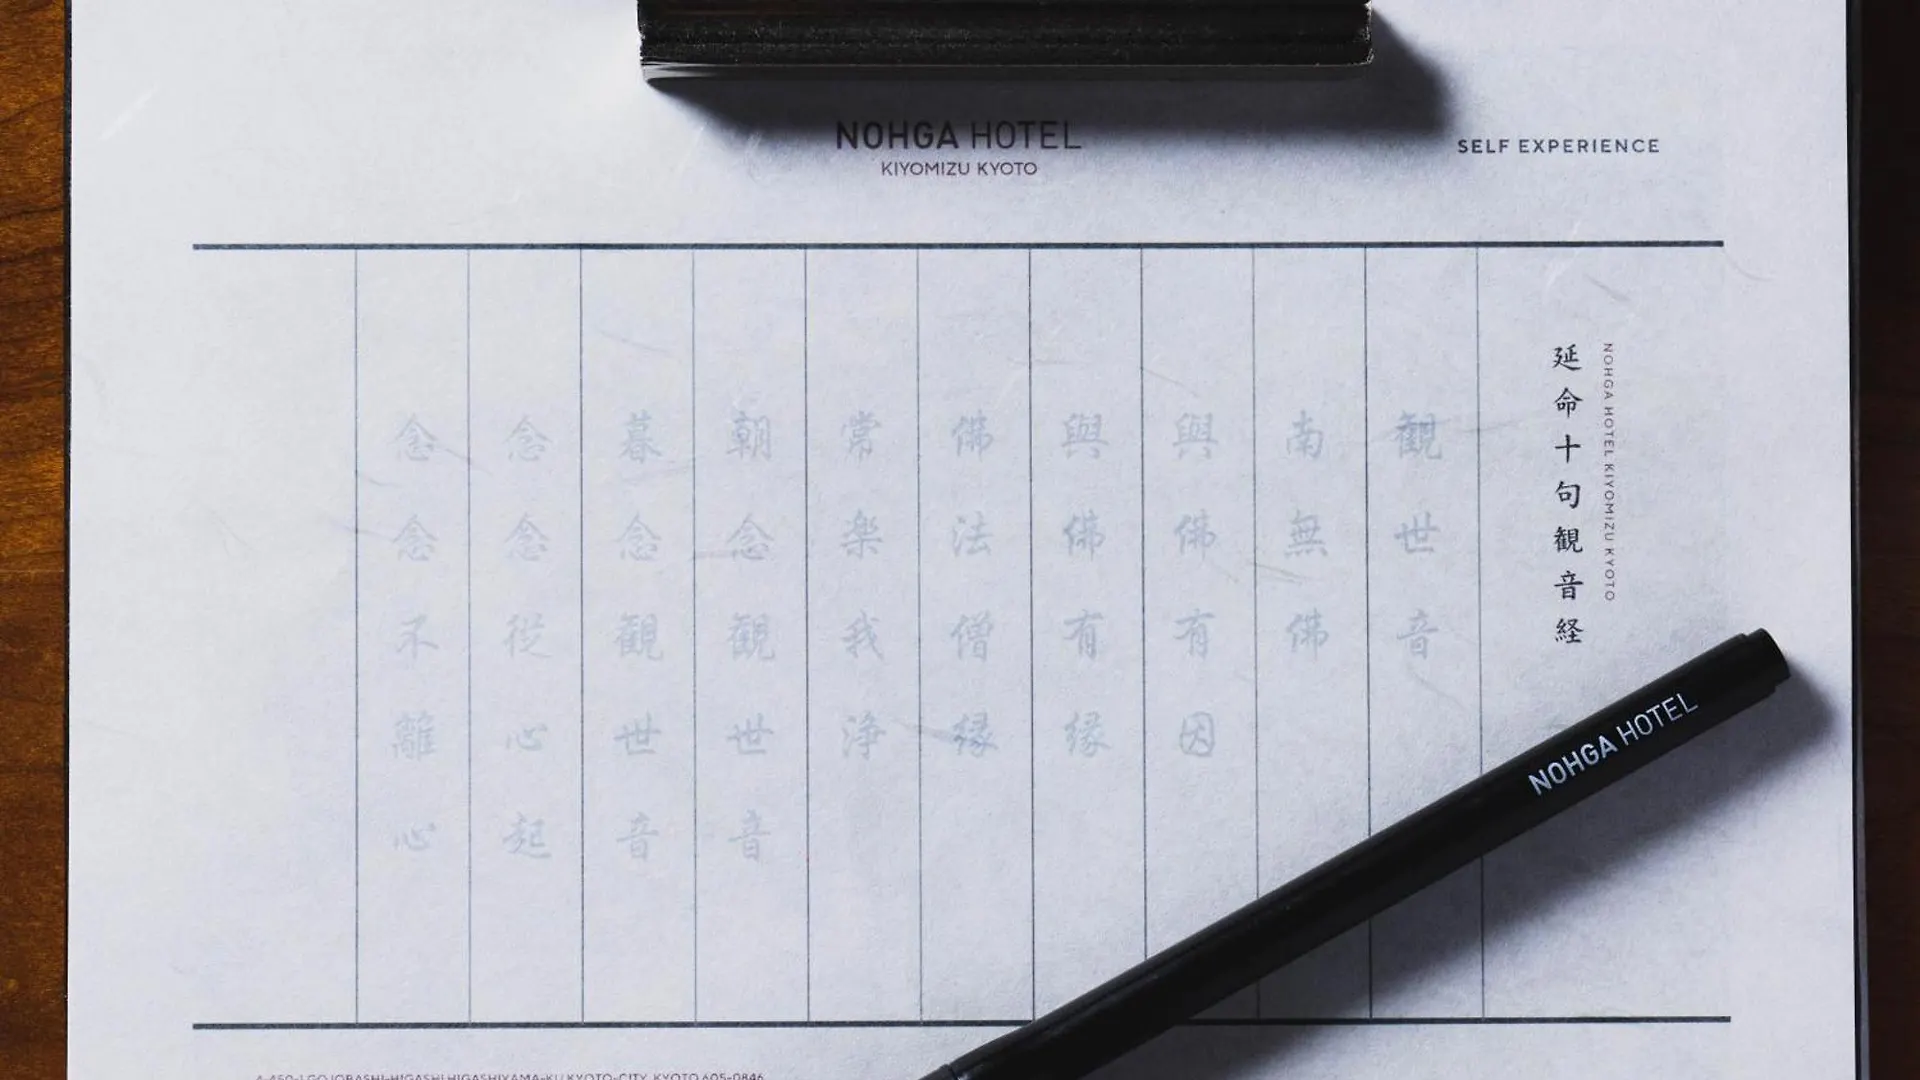 NOHGA HOTEL
KIYOMIZU KYOTO
SELF EXPERIENCE
NOHGA HOTEL KIYOMIZU KYOTO
延命十句観音経
観世音
南無佛
與佛有因
與佛有縁
佛法僧縁
常楽我浄
朝念観世音
暮念観世音
念念從心起
念念不離心
NOHGA HOTEL
4-450-1 GOJOBASHI-HIGASHI HIGASHIYAMA-KU KYOTO-CITY, KYOTO 605-0846